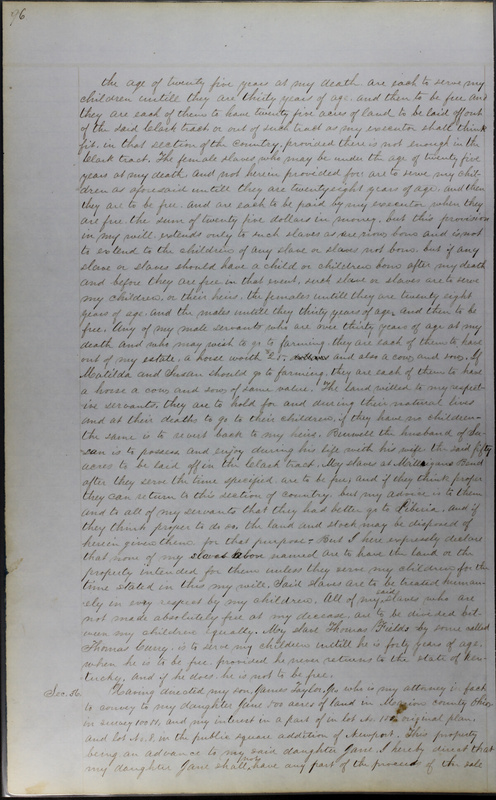 96
the age of twenty five years at my death are each to serve my
children untill they are thirty years of age. and then to be free and
they are each of them to have twenty five acres of land, to be laid off out
of the said Clark tract, or out of such tract as my executor shall think
fit, in that section of the country, provided there is not enough in the
Clark tract. The female slaves who may be under the age of twenty five
years at my death, and not herein provided for are to serve my chil-
dren as aforesaid untill they are twenty eight years of age, and then
they are to be free. and are each to be paid by my executor when they
are free the sum of twenty five dollars in money, but this provision
in my will extends only to such slaves as are now born and is not
to extend to the children of any slave or slaves not born, but if any
slave or slaves should have a child or children born after my death
and before they are free in that event, such slave or slaves are to serve
my children, or their heirs, the females untill they are twenty eight
years of age and the males untill they thirty years of age, and then to be
free. Any of my male servants who are over thirty years of age at my
death, and who may wish to go to farming, they are each of them to have
out of my estate, a horse worth and also a cow, and sow. If
Matilda and Susan should go to farming, they are each of them to have
a horse a cow and sow of same value. The land willed to my respect-
ive servants, they are to hold for and during their natural lives
and at their deaths to go to their children, if they have no children
the same is to revert back to my heirs. Burwell the husband of Su-
san is to possess and enjoy during his life with his wife the said fifty
acres to be laid off in the Clark tract. My slaves at Millagans Bend
after they serve the time specified are to be free, and if they think proper
they can return to this section of country, but my advice is to them
and to all of my servants that they had better go to Liberia, and if
they think proper to do so, the land and stock may be disposed of
herein given them for that purpose. But I here expressly declare
that none of my slaves above named are to have the land or the
property intended for them unless they serve my children for the
time stated in this my will. Said slaves are to be treated human-
ely in every respect by my children. All of my said slaves who are
not made absolutely free at my decease, are to be divided bet-
ween my children equally. My slave Thomas Fields by some called
Thomas Curry, is to serve my children untill he is forty years of age,
when he is to be free, provided he never returns to the state of Ken-
tucky, and if he does he is not to be free.
Having directed my son James Taylor Jr. who is my attorney in fact
to convey to my daughter Jane 700 acres of land in Marion county Ohio
in survey and my interest in a part of in lot No. original plan,
and lot No. 8. in the public square addition of Newport. This property
being an advance to my said daughter Jane. I hereby direct that
my daughter Jane shall not have any part of the proceeds of the sale